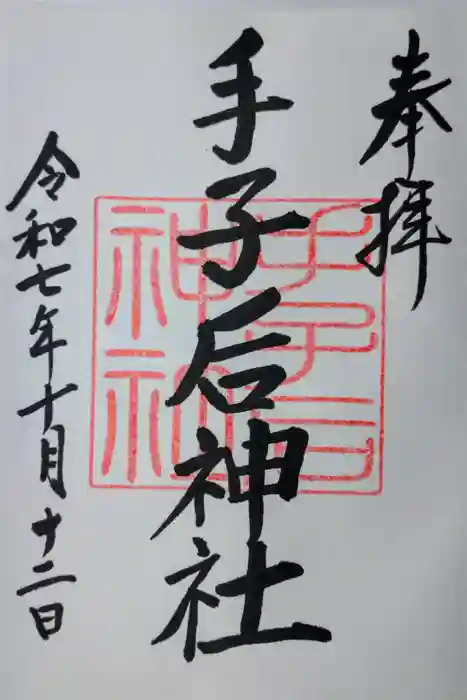 奉拝
手子后神社
令和七年十月十二日
手子后
神社